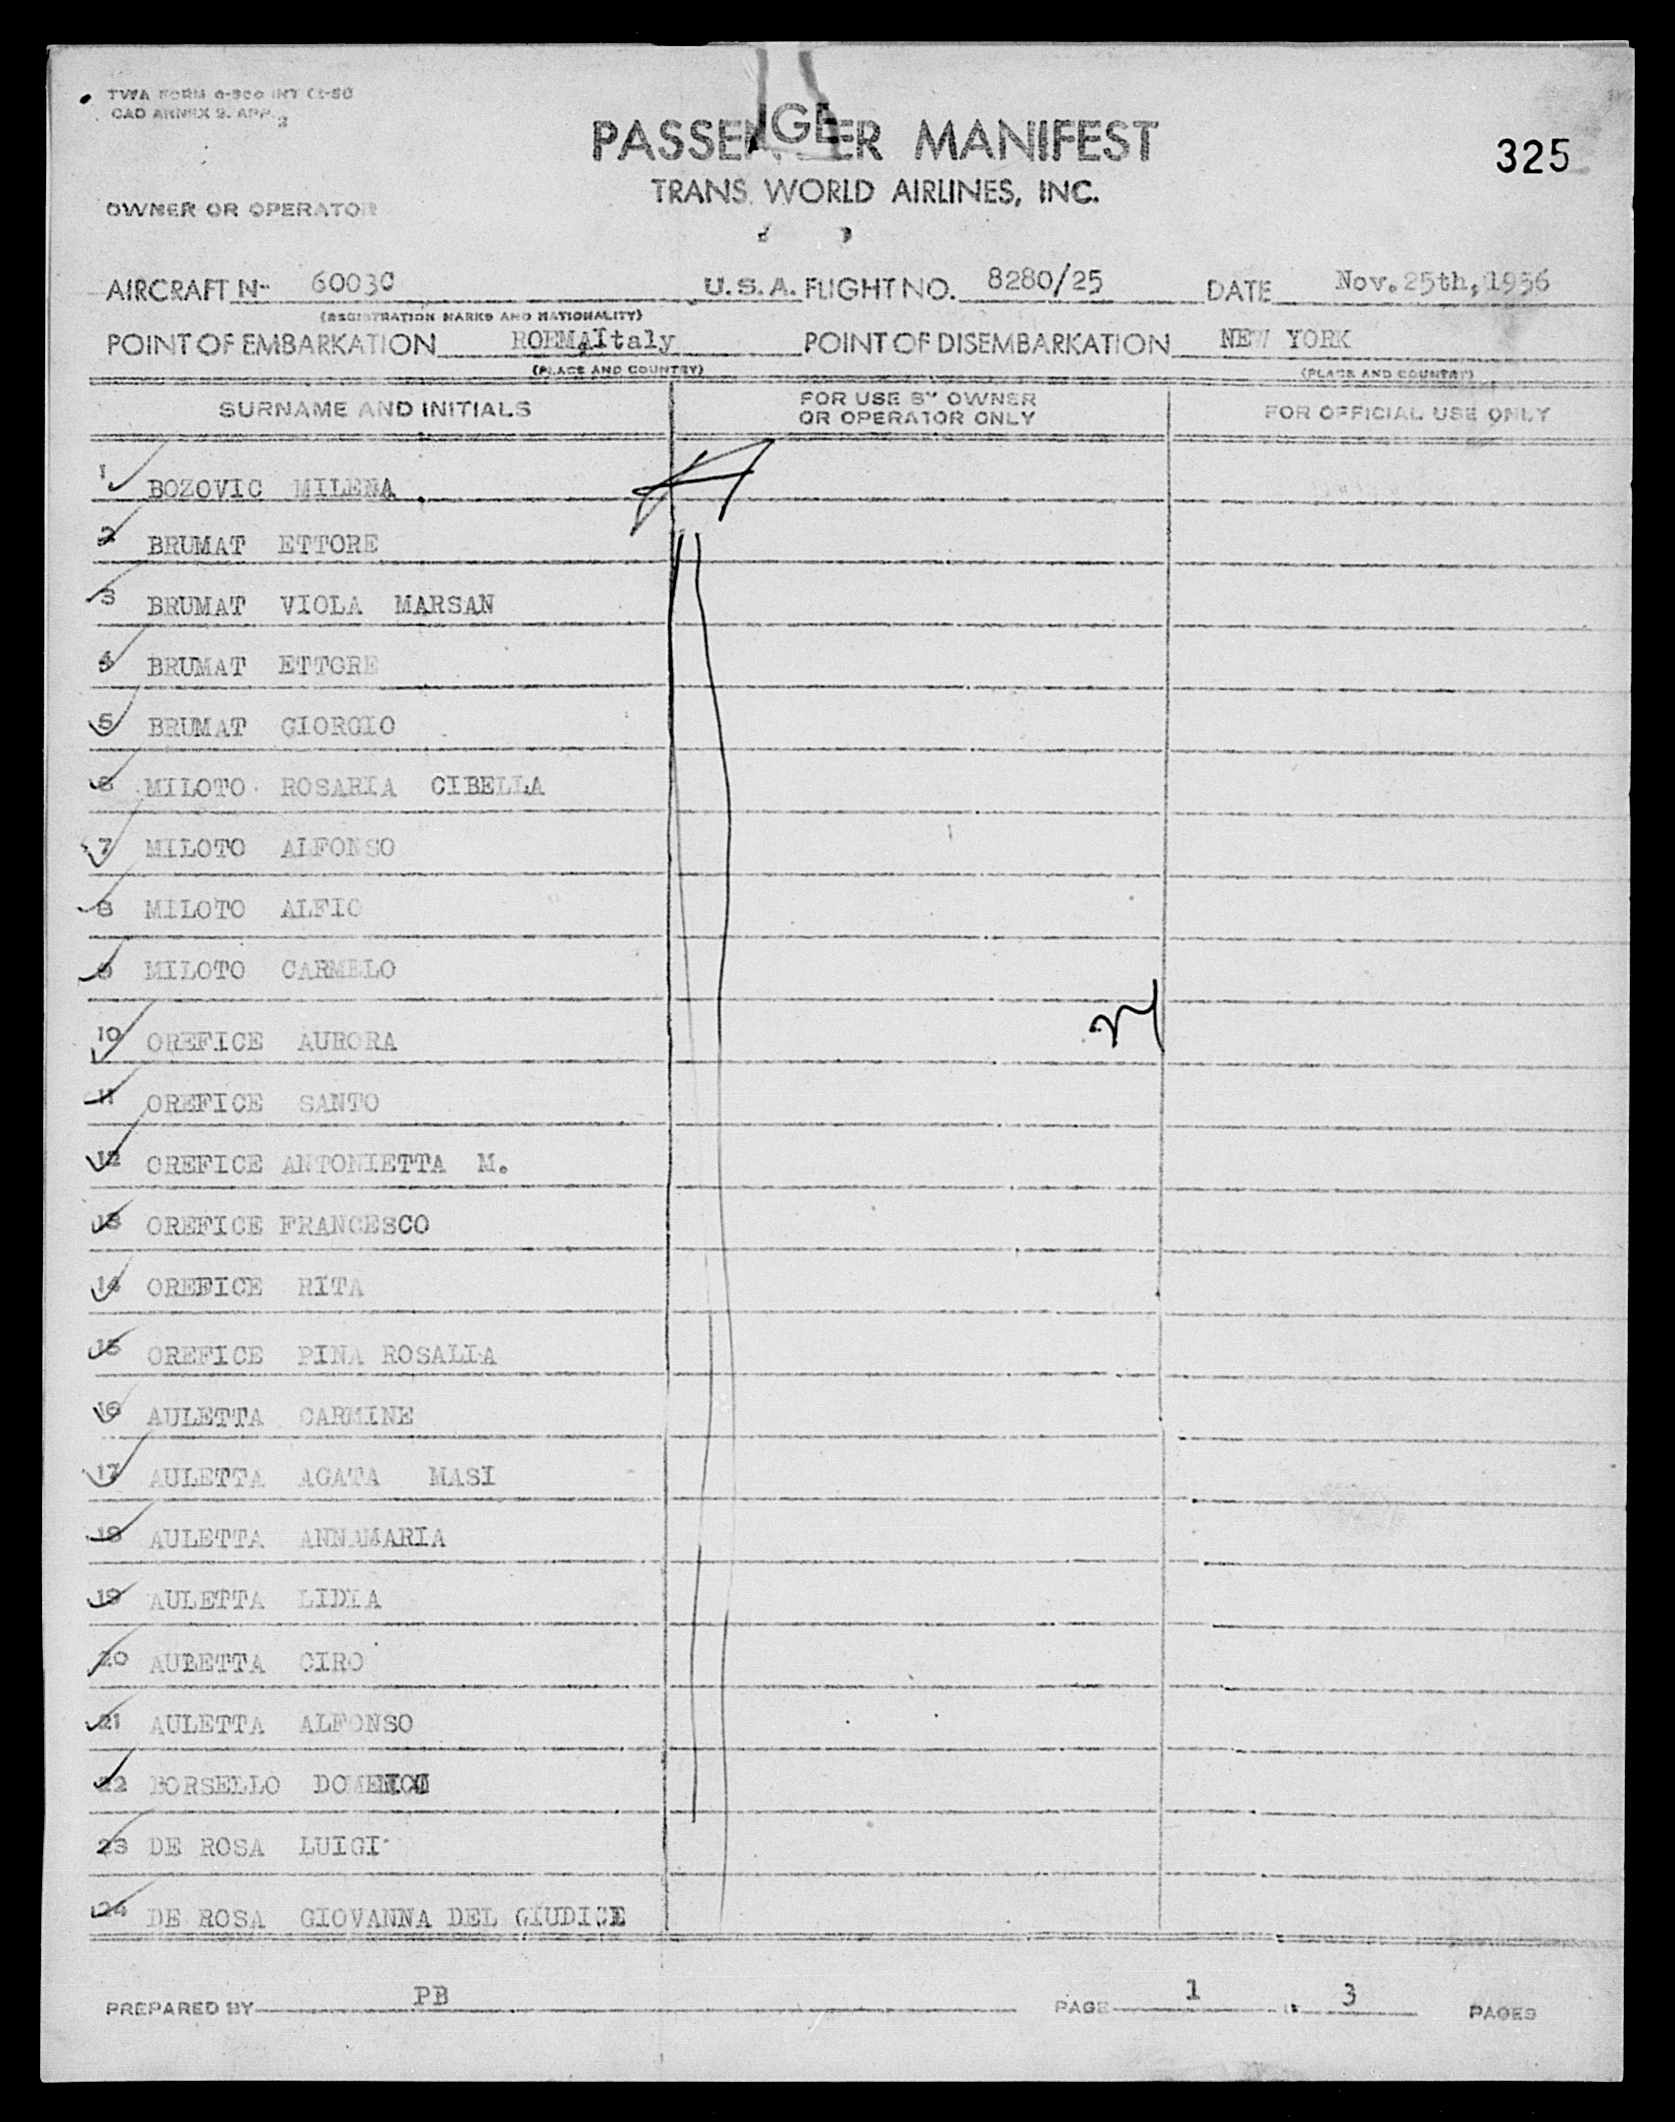 TWA FORM
CAO ANNEX 9. APP. 3
PASSENGER MANIFEST
325
TRANS WORLD AIRLINES, INC.
OWNER OR OPERATOR
AIRCRAFT N- 6003C U.S.A. FLIGHT NO. 8280/25 DATE Nov. 25th, 1956
(REGISTRATION MARKS AND NATIONALITY)
POINT OF EMBARKATION Italy POINT OF DISEMBARKATION NEW YORK
(PLACE AND COUNTRY) (PLACE AND COUNTRY)
SURNAME AND INITIALS FOR USE BY OWNER OR OPERATOR ONLY FOR OFFICIAL USE ONLY
1 BOZOVIC MILENA
2 BRUMAT ETTORE
3 BRUMAT VIOLA MARSAN
4 BRUMAT ETTORE
5 BRUMAT GIORGIO
6 MILOTO ROSARIA CIBELLA
7 MILOTO ALFONSO
8 MILOTO ALFIO
9 MILOTO CARMELO
10 OREFICE AURORA
11 OREFICE SANTO
12 OREFICE ANTONIETTA M.
13 OREFICE FRANCESCO
14 OREFICE RITA
15 OREFICE PINA ROSALIA
16 AULETTA CARMINE
17 AULETTA AGATA MASI
18 AULETTA ANNAMARIA
19 AULETTA LIDIA
20 AULETTA CIRO
21 AULETTA ALFONSO
22 BORSELLO
23 DE ROSA LUIGI
24 DE ROSA GIOVANNA DEL GIUDICE
PREPARED BY PB PAGE 1 3 PAGES